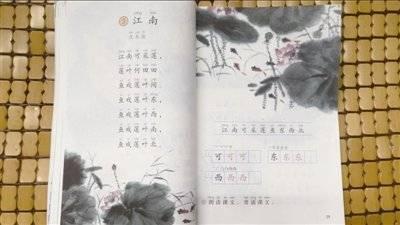 3 江南
汉乐府
江南可采莲，
莲叶何田田。
鱼戏莲叶间。
鱼戏莲叶东，
鱼戏莲叶西，
鱼戏莲叶南，
鱼戏莲叶北。
江南可采莲鱼东西北
可可可 东东东
西西西
朗读课文。背诵课文。